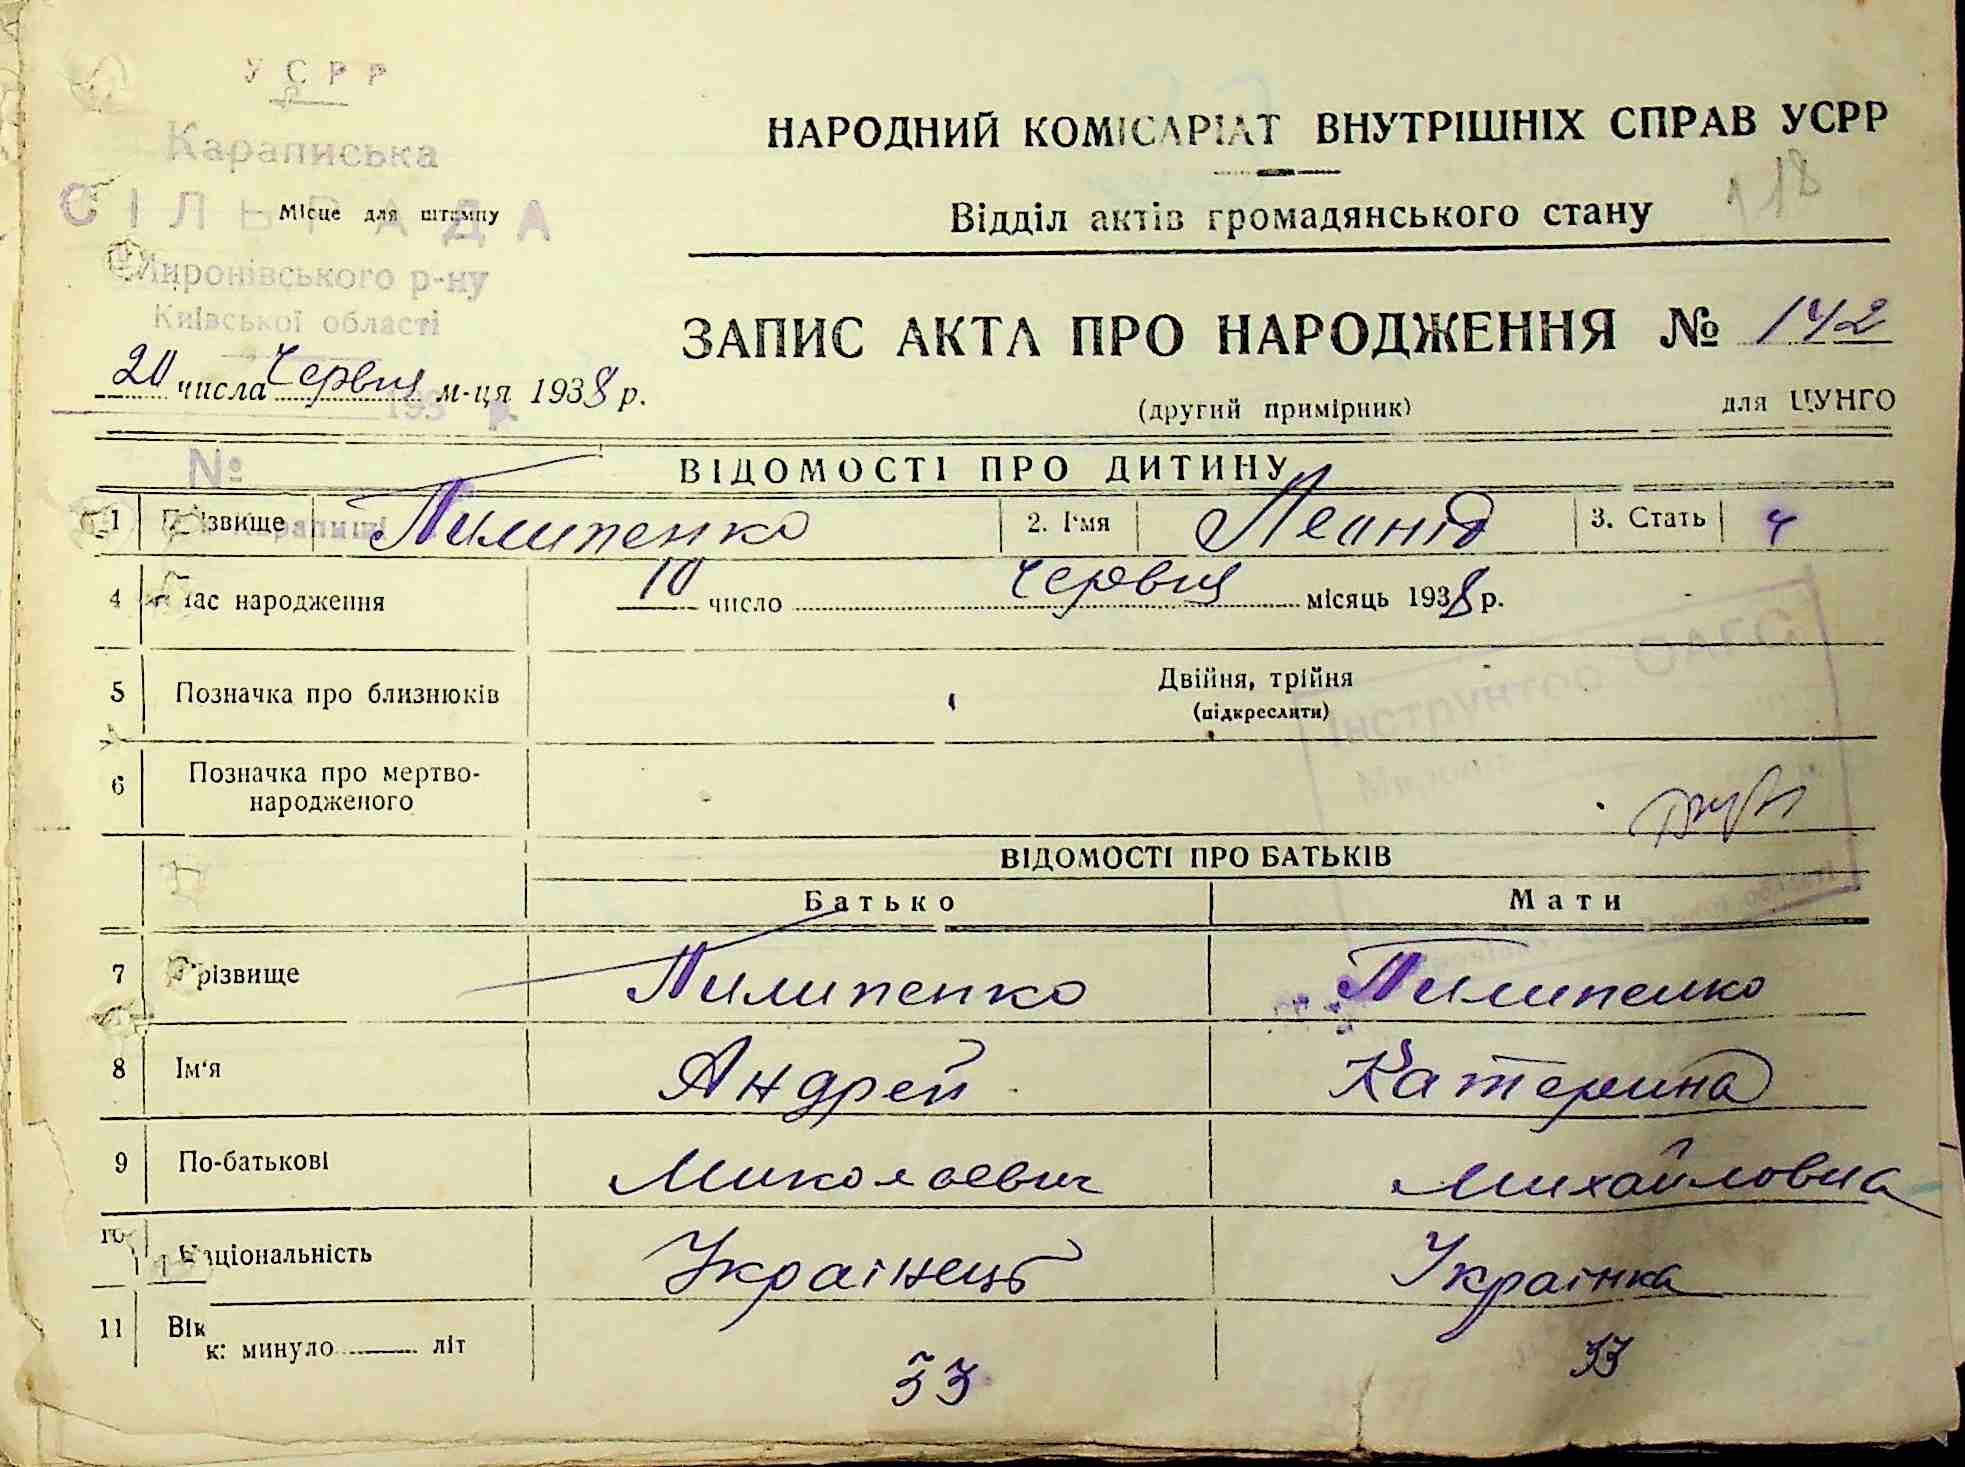 УСРР
Караписька
СІЛЬРАДА
Місце для штампу
Миронівського р-ну
Київської області
20 числа Червня м-ця 1938 р.
193 р.
№
НАРОДНИЙ КОМІСАРІАТ ВНУТРІШНІХ СПРАВ УСРР
118
Відділ актів громадянського стану
ЗАПИС АКТА ПРО НАРОДЖЕННЯ № 142
(другий примірник) для ЦУНГО
ВІДОМОСТІ ПРО ДИТИНУ
1 Прізвище Пилипенко 2. І'мя Леонід 3. Стать ч
4 Час народження 10 число Червня місяць 1938 р.
5 Позначка про близнюків Двійня, трійня
(підкреслити)
Інструктор ОАГС
6 Позначка про мертво-
народженого
ВІДОМОСТІ ПРО БАТЬКІВ
Батько Мати
7 Прізвище Пилипенко Пилипенко
8 Ім'я Андрей Катерина
9 По-батькові Миколаевич Михайловна
10 Національність Украінець Украінка
11 Вік: минуло ____ літ 33 33